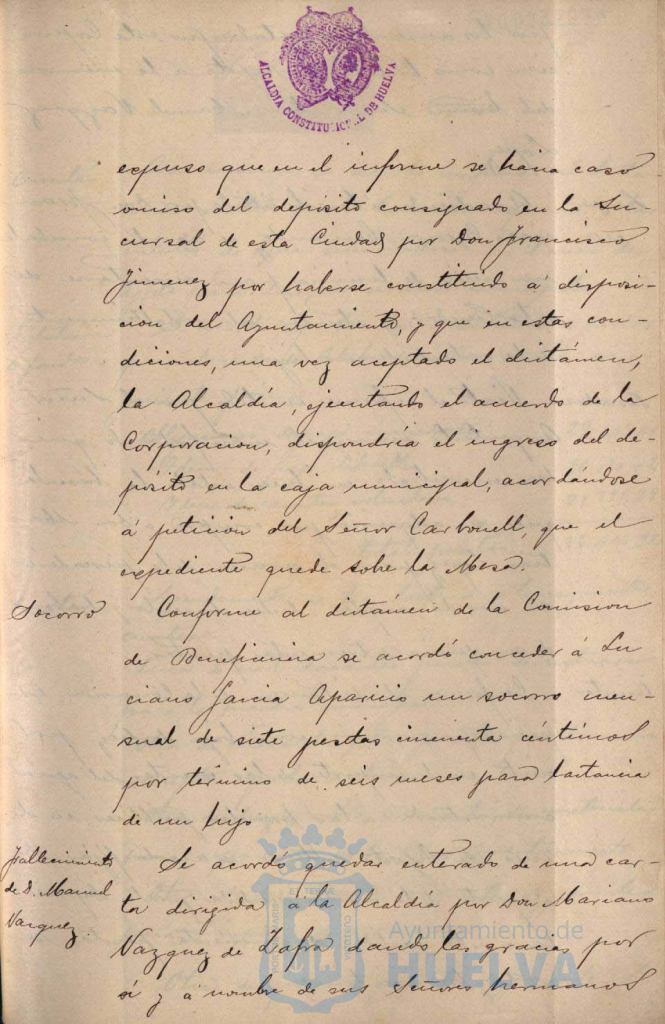 ALCALDIA CONSTITUCIONAL DE HUELVA
expuso que en el informe se hacia caso
omiso del depósito consignado en la Su-
cursal de esta Ciudad por Don Francisco
Jimenez por haberse constituido á disposi-
cion del Ayuntamiento, y que en estas con-
diciones, una vez aceptado el dictámen,
la Alcaldía, ejecutando el acuerdo de la
Corporacion, dispondría el ingreso del de-
pósito en la caja municipal, acordándose
á peticion del Señor Carbonell, que el
expediente quede sobre la Mesa.
Socorro
Conforme al dictámen de la Comision
de Beneficencia se acordó conceder á Lu
ciano Garcia Aparicio un socorro men-
sual de siete pesetas cincuenta céntimos
por término de seis meses para lactancia
de un hijo
Fallecimiento
de D. Manuel
Vazquez.
Se acordó quedar enterado de una car-
ta dirigida á la Alcaldía por Don Mariano
Vazquez de Zafra dando las gracias por
sí y á nombre de sus Señores hermanos
Ayuntamiento de
HUELVA